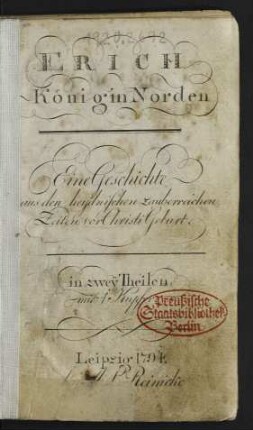 ERICH
König in Norden
Eine Geschichte
aus den heydnischen zauberreichen
Zeiten vor Christi Geburt.
in zwey Theilen.
mit 1 Kupf.
Preußische
Staatsbibliothek
Berlin.
Leipzig 1794.
Reinicke